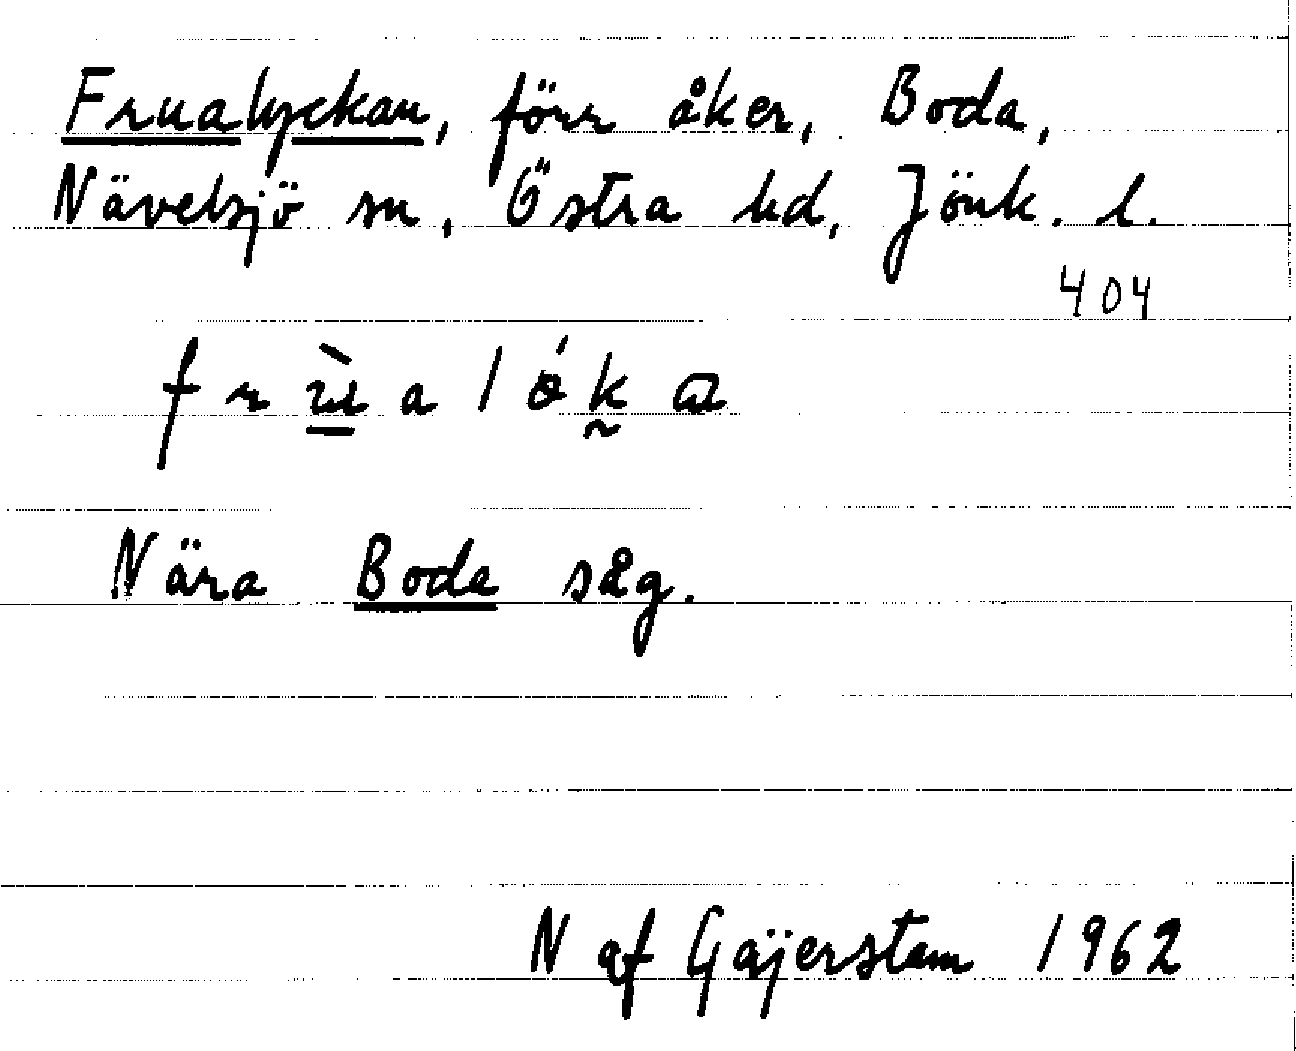 Frualyckan, förr åker, Boda,
Nävelsjö sn, Östra hd, Jönk. l.
404
Nära Boda såg.
N af Gajerstam 1962